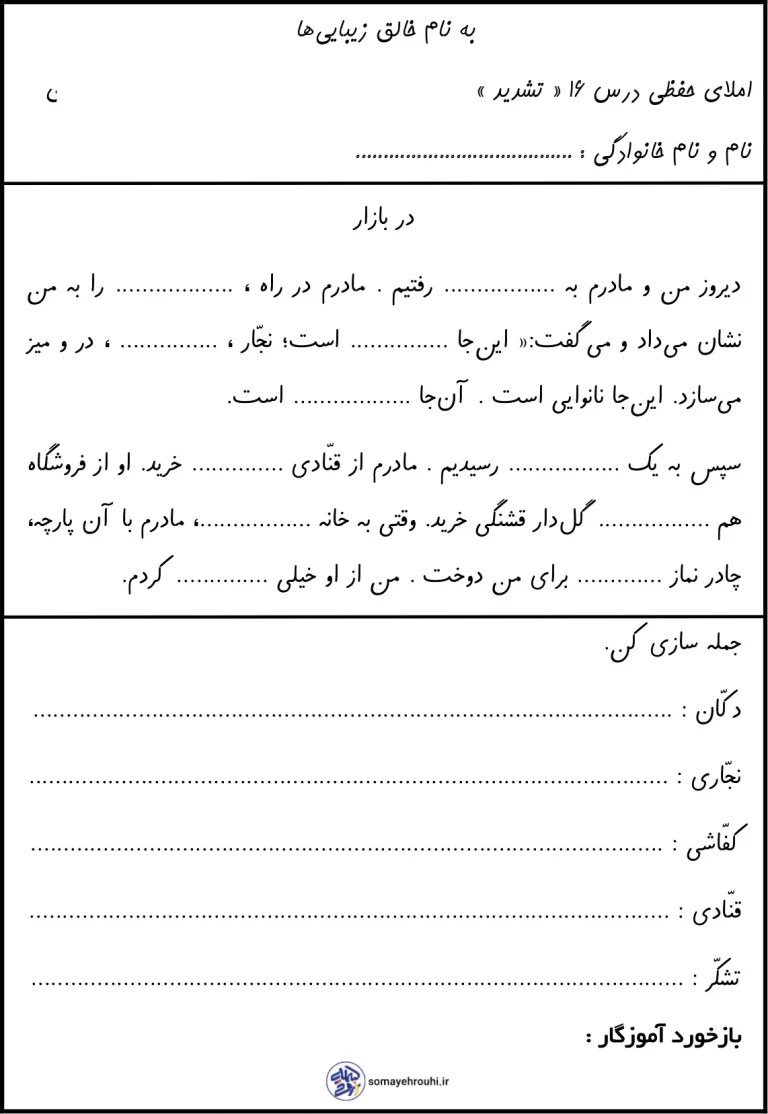 به نام خالق زیبایی‌ها
املای حفظی درس ۱۶ « تشدید »
نام و نام خانوادگی : .......................................
در بازار
دیروز من و مادرم به ................. رفتیم . مادرم در راه ، .................. را به من
نشان می‌داد و می‌گفت:« این‌جا ............... است؛ نجّار ، ............... ، در و میز
می‌سازد. این‌جا نانوایی است . آن‌جا .................. است.
سپس به یک ................. رسیدیم . مادرم از قنّادی .............. خرید. او از فروشگاه
هم ................. گل‌دار قشنگی خرید. وقتی به خانه .................، مادرم با آن پارچه،
چادر نماز ............. برای من دوخت . من از او خیلی .............. کردم.
جمله سازی کن.
دکّان : .................................................................................................
نجّاری : .................................................................................................
کفّاشی : ................................................................................................
قنّادی : .................................................................................................
تشکّر : ...................................................................................................
بازخورد آموزگار :
somayehrouhi.ir